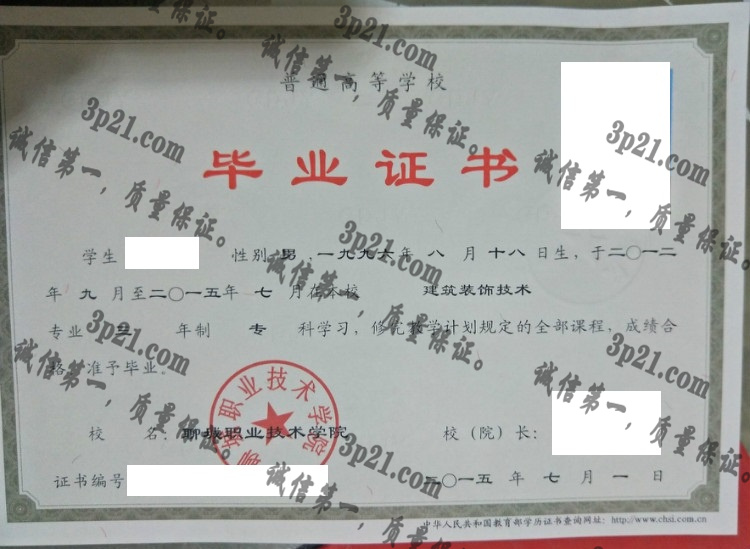 普通高等学校
毕业证书
学生 性别 男 ,一九九六年 八 月 十八 日生,于二〇一二
年 九 月至二〇一五年 七 月在本校 建筑装饰技术
专业 三 年制 专 科学习,修完教学计划规定的全部课程,成绩合
格,准予毕业。
校 名:聊城职业技术学院 校(院)长:
证书编号 二〇一五 年 七 月 一 日
中华人民共和国教育部学历证书查询网址:http://www.chsi.com.cn
聊城职业技术学院
3p21.com
诚信第一,质量保证。
3p21.com
诚信第一,质量保证。
3p21.com
诚信第一,质量保证。
3p21.com
诚信第一,质量保证。
3p21.com
诚信第一,质量保证。
3p21.com
诚信第一,质量保证。
3p21.com
诚信第一,质量保证。
3p21.com
诚信第一,质量保证。